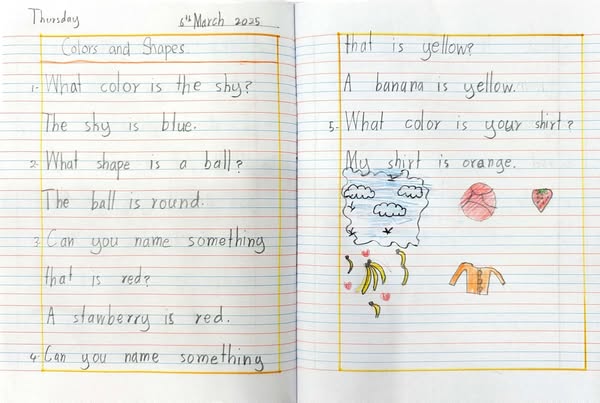 Thursday 6th March 2025
Colors and Shapes
1. What color is the shy?
The shy is blue.
2. What shape is a ball?
The ball is round.
3. Can you name something
that is red?
A stawberry is red.
4. Can you name something
that is yellow?
A banana is yellow.
5. What color is your shirt?
My shirt is orange.